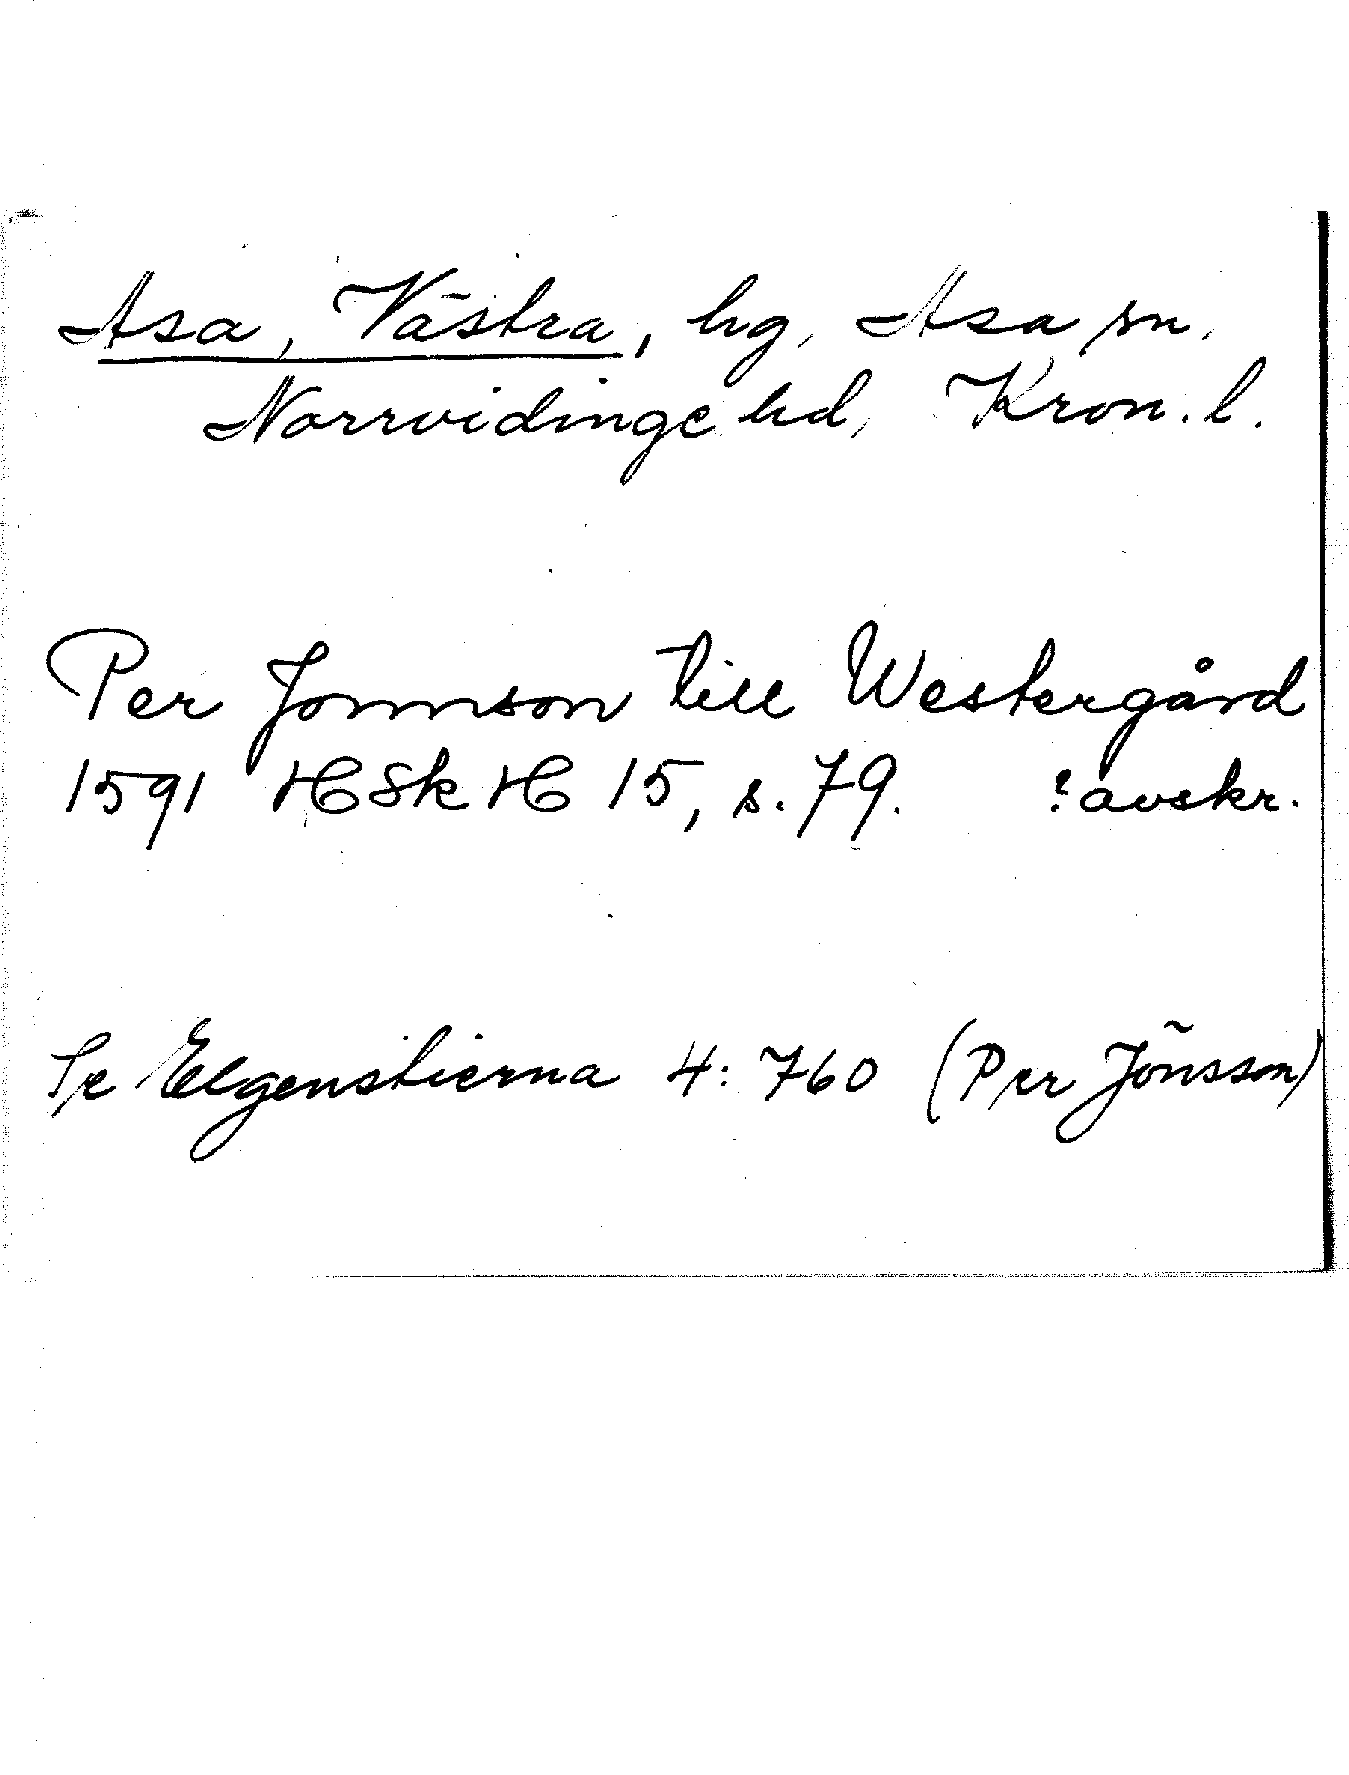 Asa, Västra, hg, Asa sn,
Norrvidinge hd, Kron. l.
Per Jonnson till Westergård
1591 HSkH 15, s. 79. ? avskr.
Se Elgenstierna 4: 760 (Per Jönsson)